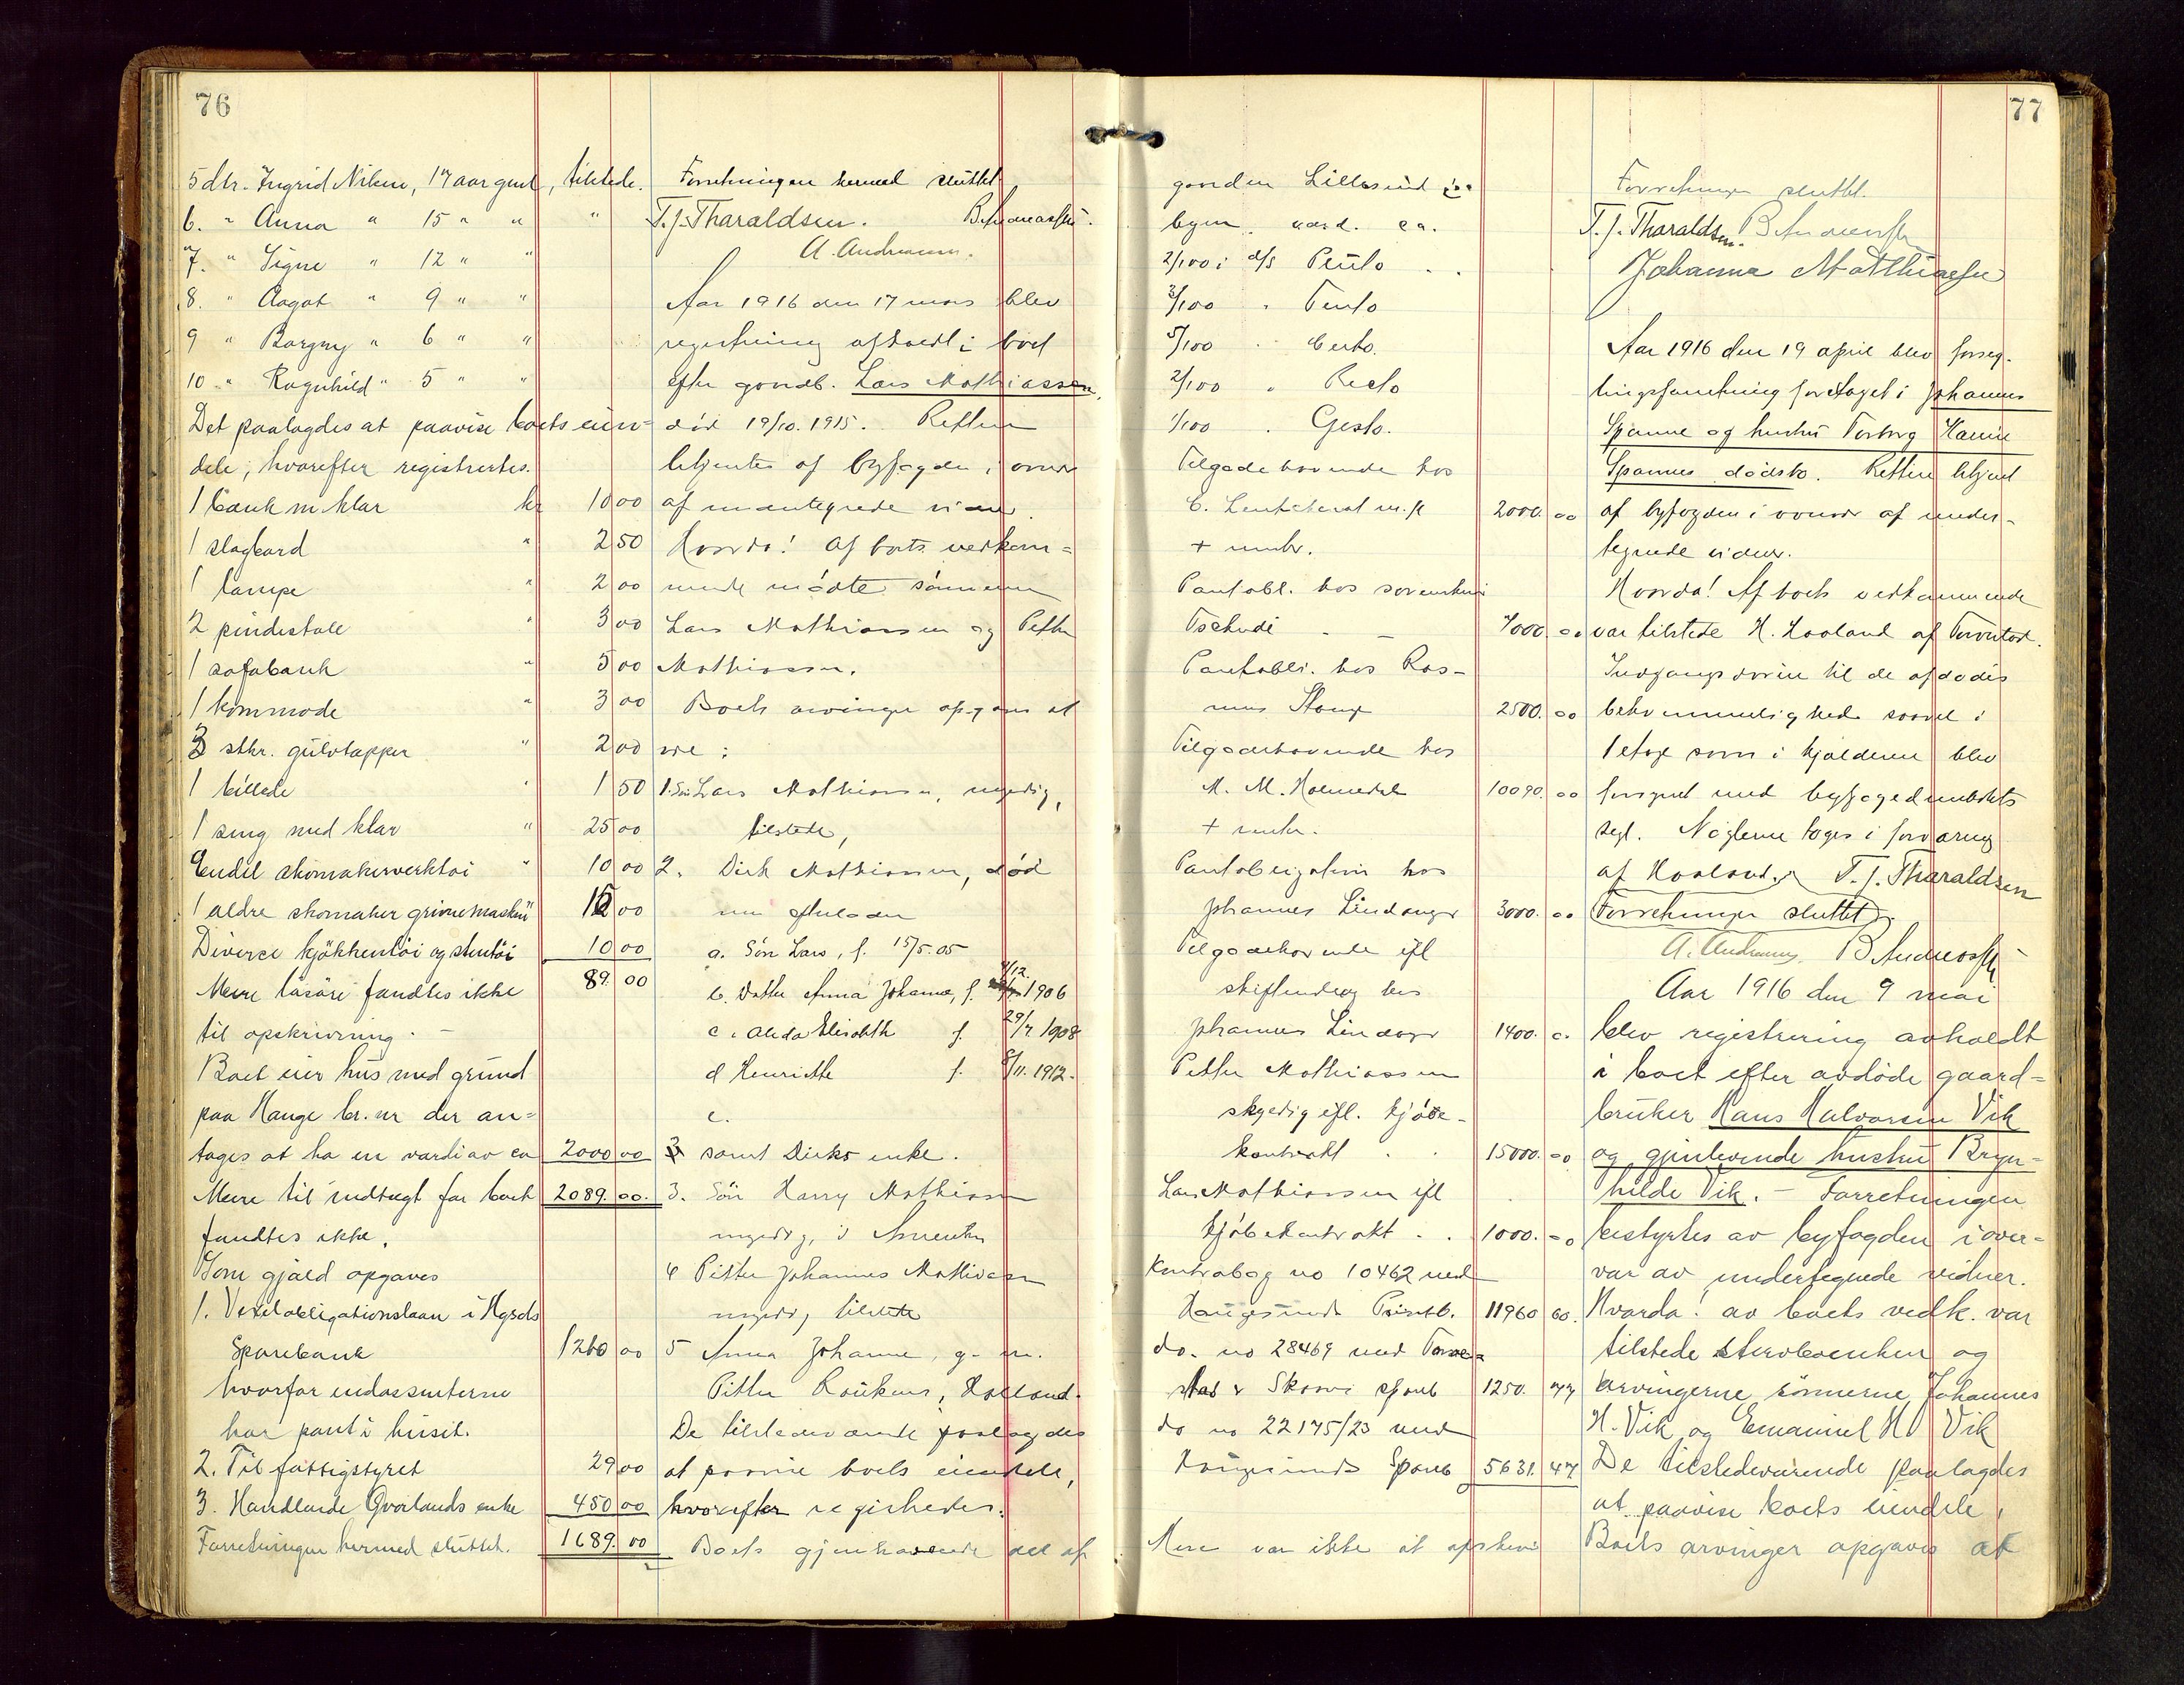 76
5 dtr. Ingrid Nilsen, 17 aar gml, tilstede.
6. " Anna " 15 " " "
7. " Signe " 12 " "
8. " Aagot " 9 " "
9 " Borgny " 6 " "
10 " Ragnhild " 5 " "
Det paalagdes at paavise boets eien-
dele, hvorefter registrertes.
1 bænk m klær kr 10 00
1 slagbord " 2 50
1 lampe " 2 00
2 pindestole " 3 00
1 sofabænk " 5 00
1 kommode " 3 00
3 stkr. gulvtæpper " 2 00
1 billede " 1 50
1 seng med klær " 25 00
Endel skomakerverktøi " 10 00
1 ældre skomaker maskin " 00
Diverse kjøkkentøi og stentøi 10 00
Mere løsøre fandtes ikke 89. 00
til opskrivning. —
Boet eier hus med grund
paa Hauge br. nr der an-
tages at ha en værdi av ca 2000 00
Mere til indtægt for boet 2089. 00.
fandtes ikke.
Som gjæld opgaves
1. Vexelobligationslaan i Hgsds
Sparebank 1200 00
hvorfor endossenterne
har pant i huset.
2. Til fattigstyret 29 00
3. Handlende Qvalands enke 450 00
Forretningen hermed sluttet. 1689. 00
Forretningen hermed sluttet
T. J. Tharaldsen. B. Andreassen.
A. Andreassen.
Aar 1916 den 17 mars blev
registrering afholdt i boet
efter gaardb. Lars Mathiassen,
død 19/10. 1915. Retten
betjentes af byfogden i overv
af undertegnede vidner.
Hvorda! Af boets vedkom-
mende mødte sønnerne
Lars Mathiassen og Petter
Mathiassen.
Boets arvinger opgaves at
være:
1. Søn Lars Mathiassen, myndig,
tilstede,
2. Dirk Mathiassen, død
men efterlader
a. Søn Lars, f. 15/5. 05
b. Datter Anna Johanne, f. 1906
c. Alida Elisabeth f. 29/7 1908
d Henriette f. 8/11. 1912.
e.
samt Dirks enke.
3. Søn Harry Mathiassen
myndig, i Amerika
4 Petter Johannes Mathiassen
myndig, tilstede
5 Anna Johanne, g. m.
Petter Haaland.
De tilstedeværende paalagdes
at paavise boets eiendele,
hvorefter registrertes:
Boets gjenhavende del af
77
gaarden Lillesund i
byen værd. ca.
2/100 i d/s Pluto . .
3/100 . Tento
5/100 . Certo.
2/100 " Recto
1/100 . Gesto.
Tilgodehavende hos
2000. 00
+ renter.
Pantobl. hos
Tschudi . — 7000. 00
Pantobli. hos Ras-
mus 2500. 00
Tilgodehavende hos
M. M. Holmedal 10090. 00
+ renter.
Pantobligation hos
Johannes Lindanger 3000. 00
Tilgodehavende ifl
hos
Johannes 1400.
Petter Mathiassen
skyldig ifl. kjøbe-
kontrakt . . 15000. 00
Lars Mathiassen ifl
kjøbekontrakt . . 1000. 00
Kontrabog no 10462 med
Haugesunds Privatb. 11960 60.
do. no 28469 med Torve-
stad & Skaare sparb 1250. 77
do no 22175/23 med
Haugesunds Sparb 5631. 47
Mere var ikke at opskrive
Forretningen sluttet.
T. J. Tharaldsen. B. Andreassen
Johanna Matthiassen
Aar 1916 den 19 april blev forseg-
lingsforretning foretaget i Johannes
Spanne og hustru Torborg Hanne
Spannes dødsbo. Retten betjent
af byfogden i overvær af under-
tegnede vidner.
Hvorda! Af boets vedkommende
var tilstede H. Haaland af Torvestad.
Indgangsdøren til de afdødes
bekvemmelighed saavel i
1 etage som i kjælderen blev
forseglet med byfogedembedets
segl. Nøglerne toges i forvaring
af Haaland. T. J. Tharaldsen
Forretningen sluttet.
A. Andreassen B. Andreassen
Aar 1916 den 9 mai
blev registrering avholdt
i boet efter avdøde gaard-
bruker Hans Halvorsen Vik
og gjenlevende hustru Bryn-
hilde Vik. — Forretningen
bestyrtes av byfogden i over-
vær av undertegnede vidner.
Hvorda! av boets vedk. var
tilstede sterboenken og
arvingerne, sønnerne Johannes
H. Vik og Emanuel H Vik
De tilstedeværende paalagdes
at paavise boets eiendele,
Boets arvinger opgaves at